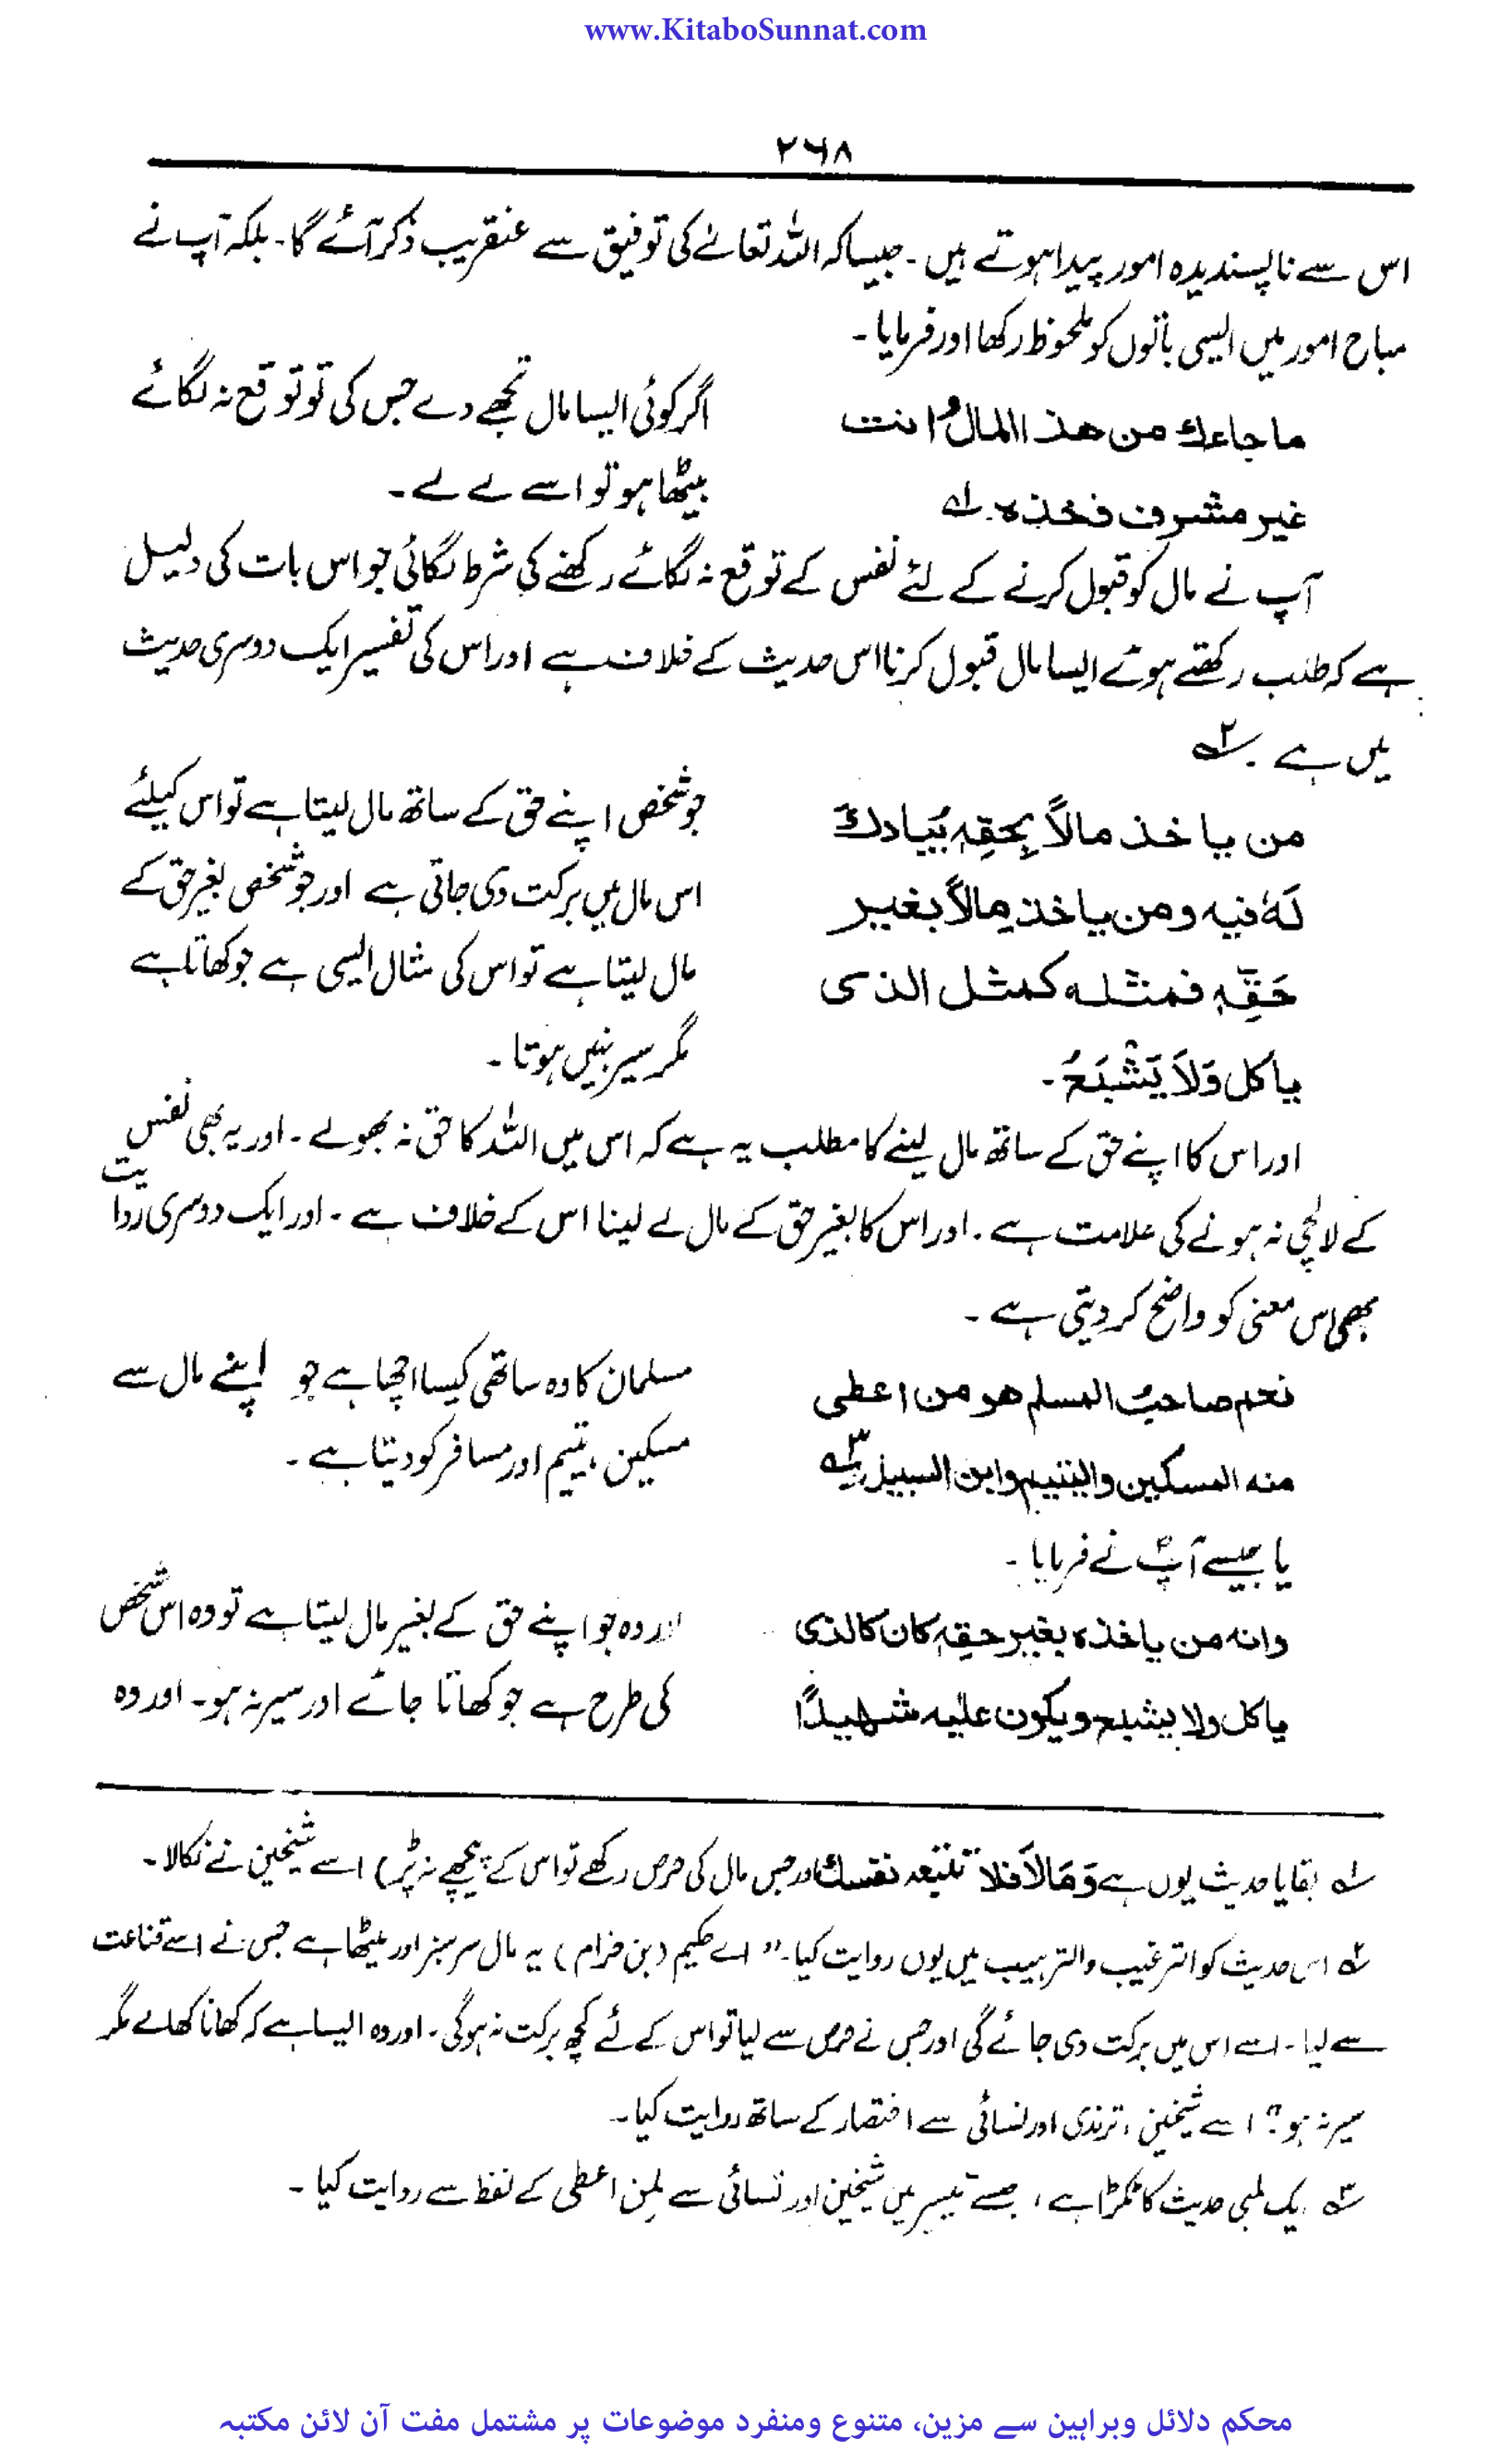 www.KitaboSunnat.com
۲۶۸
اس سے ناپسندیدہ امور پیدا ہوتے ہیں۔ جیسا کہ اللہ تعالےٰ کی توفیق سے عنقریب ذکر آئے گا۔ بلکہ آپ نے
مباح امور میں ایسی باتوں کو ملحوظ رکھا اور فرمایا۔
ما جاءك من هذا المال و انت
غير مشرف فخذه۔ لہ
اگر کوئی ایسا مال تجھے دے جس کی تو توقع نہ لگائے
بیٹھا ہو تو اسے لے لے۔
آپ نے مال کو قبول کرنے کے لئے نفس کے توقع نہ لگائے رکھنے کی شرط لگائی جو اس بات کی دلیل
ہے کہ طلب رکھتے ہوئے ایسا مال قبول کرنا اس حدیث کے خلاف ہے اور اس کی تفسیر ایک دوسری حدیث
میں ہے۔ ۲؎
من ياخذ مالاً بِحقِهٖ يُبادك
لَهٗ فيه ومن ياخذ مالاً بغير
حَقِّهٖ فمثله كمثل الذى
ياكل وَلاَ يَشْبَعُ۔
جو شخص اپنے حق کے ساتھ مال لیتا ہے تو اس کیلئے
اس مال میں برکت دی جاتی ہے اور جو شخص بغیر حق کے
مال لیتا ہے تو اس کی مثال ایسی ہے جو کھاتا ہے
مگر سیر نہیں ہوتا۔
اور اس کا اپنے حق کے ساتھ مال لینے کا مطلب یہ ہے کہ اس میں اللہ کا حق نہ بھولے۔ اور یہ بھی نفس
کے لالچی نہ ہونے کی علامت ہے۔ اور اس کا بغیر حق کے مال لے لینا اس کے خلاف ہے۔ اور ایک دوسری روایت
بھی اس معنی کو واضح کر دیتی ہے۔
نعم صاحبُ المسلم هو من اعطى
منه المسكين واليتيم وابن السبيل ۳؎
مسلمان کا وہ ساتھی کیسا اچھا ہے جو اپنے مال سے
مسکین، یتیم اور مسافر کو دیتا ہے۔
یا جیسے آپؐ نے فرمایا۔
وانه من ياخذه بغير حقِهٖ كان كالذى
ياكل ولا يشبع ويكون عليه شهيدًا
اور وہ جو اپنے حق کے بغیر مال لیتا ہے تو وہ اس شخص
کی طرح ہے جو کھاتا جائے اور سیر نہ ہو۔ اور وہ
۱؎ بقایا حدیث یوں ہے وَمَالاَ فلا تتبعه نفسك اور جس مال کی حرص رکھے تو اس کے پیچھے نہ پڑ) اسے شیخین نے نکالا۔
۲؎ اس حدیث کو الترغیب والترہیب میں یوں روایت کیا۔ ”اے حکیم (بن حزام) یہ مال سرسبز اور میٹھا ہے جس نے اسے قناعت
سے لیا۔ اسے اس میں برکت دی جائے گی اور جس نے حرص سے لیا تو اس کے لئے کچھ برکت نہ ہوگی۔ اور وہ ایسا ہے کہ کھانا کھالے مگر
سیر نہ ہو“ اسے شیخین، ترمذی اور نسائی سے اختصار کے ساتھ روایت کیا۔
۳؎ ایک لمبی حدیث کا ٹکڑا ہے، جسے تیسیر میں شیخین اور نسائی سے لمن اعطی کے لفظ سے روایت کیا۔
محکم دلائل وبراہین سے مزین، متنوع ومنفرد موضوعات پر مشتمل مفت آن لائن مکتبہ